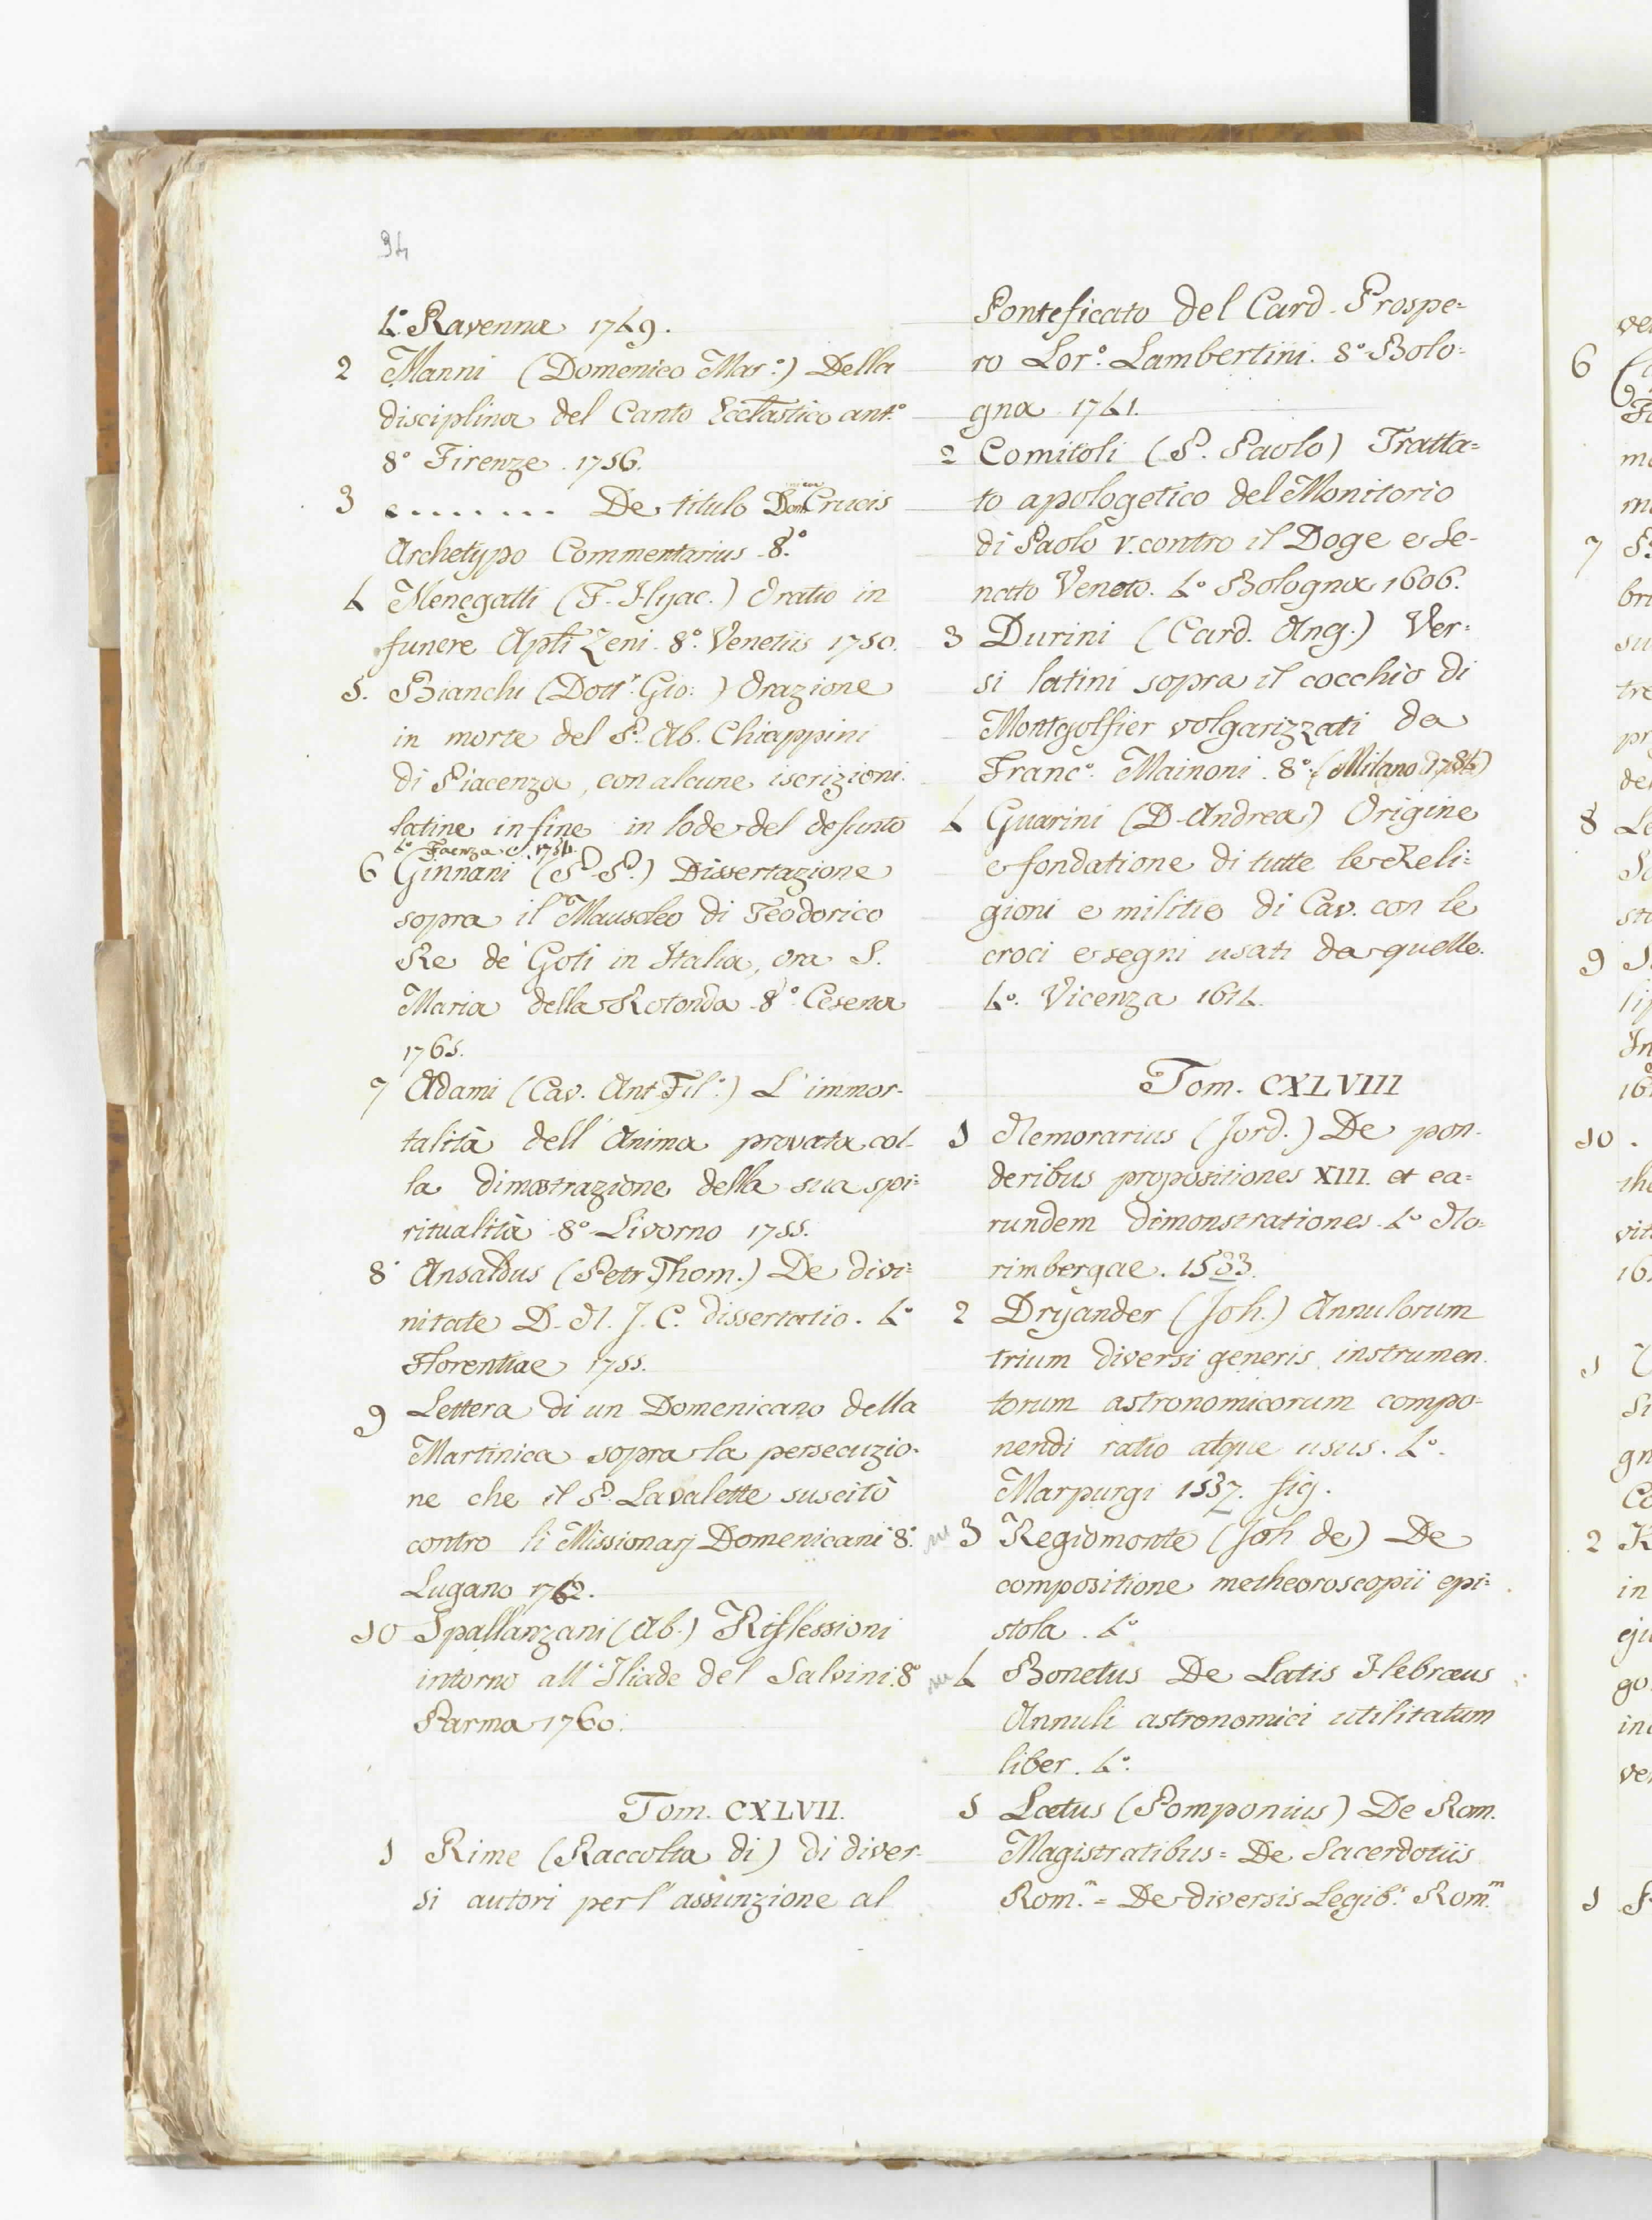 94
4.° Ravenna 1749.
2 Manni (Domenico Mar.°) Della
disciplina del Canto Eccl͞astico ant.°
8° Firenze. 1756.
3 ........ De titulo Dom. Crucis
Archetypo Commentarius. 8.°
4 Menegatti (F. Hyac.) Oratio in
funere Apl͞i Zeni. 8°. Venetiis 1750.
5. Bianchi (Dott.r Gio:) Orazione
in morte del P. Ab. Chiappini
di Piacenza, con alcune iscrizioni
latine in fine in lode del defunto
4° Faenza 1751.
6 Ginnani (P. P.) Dissertazione
sopra il Mausoleo di Teodorico
Re de' Goti in Italia, ora S.
Maria della Rotonda. 8°. Cesena
1765.
7 Adami (Cav. Ant. Fil.°) L'immor-
talità dell'Anima provata col-
la dimostrazione della sua spi=
ritualità. 8° Livorno 1755.
8 Ansaldus (Petr. Thom.) De divi=
nitate D. N. J. C. dissertatio. 4°
Florentiae 1755.
9 Lettera di un Domenicano della
Martinica sopra la persecuzio-
ne che il P. Lavalette suscitò
contro li Missionarj Domenicani 8.°
Lugano 1762.
10 Spallanzani (Ab.) Riflessioni
intorno all'Iliade del Salvini. 8°
Parma 1760.
Tom. CXLVII.
1 Rime (Raccolta di) di diver-
si autori per l'assunzione al
Ponteficato del Card. Prospe=
ro Lor.° Lambertini. 8° Bolo=
gna 1741.
2 Comitoli (P. Paolo) Tratta=
to apologetico del Monitorio
di Paolo V. contro il Doge e Se-
nato Veneto. 4° Bologna 1606.
3 Durini (Card. Ang.) Ver=
si latini sopra il cocchio di
Montgolfier volgarizzati da
Franc.° Mainoni. 8° (Milano 1784)
4 Guarini (D. Andrea) Origine
e fondatione di tutte le Reli=
gioni e militie di Cav. con le
croci e segni usati da quelle.
4°. Vicenza 1614.
Tom. CXLVIII
1 Nemorarius (Jord.) De pon-
deribus propositiones XIII. et ea=
rundem dimonstrationes. 4° No=
rimbergae. 1533.
2 Dryander (Joh.) Annulorum
trium diversi generis instrumen
torum astronomicorum compo=
nendi ratio atque usus. 4°.
Marpurgi 1537. fig.
3 Regiomonte (Joh de) De
compositione metheoroscopii epi=
stola. 4°
4 Bonetus De Latis Hebraeus
Annuli astronomici utilitatum
liber. 4°.
5 Laetus (Pomponius) De Rom.
Magistratibus = De Sacerdotiis
Rom.m = De diversis Legib.s Rom.m